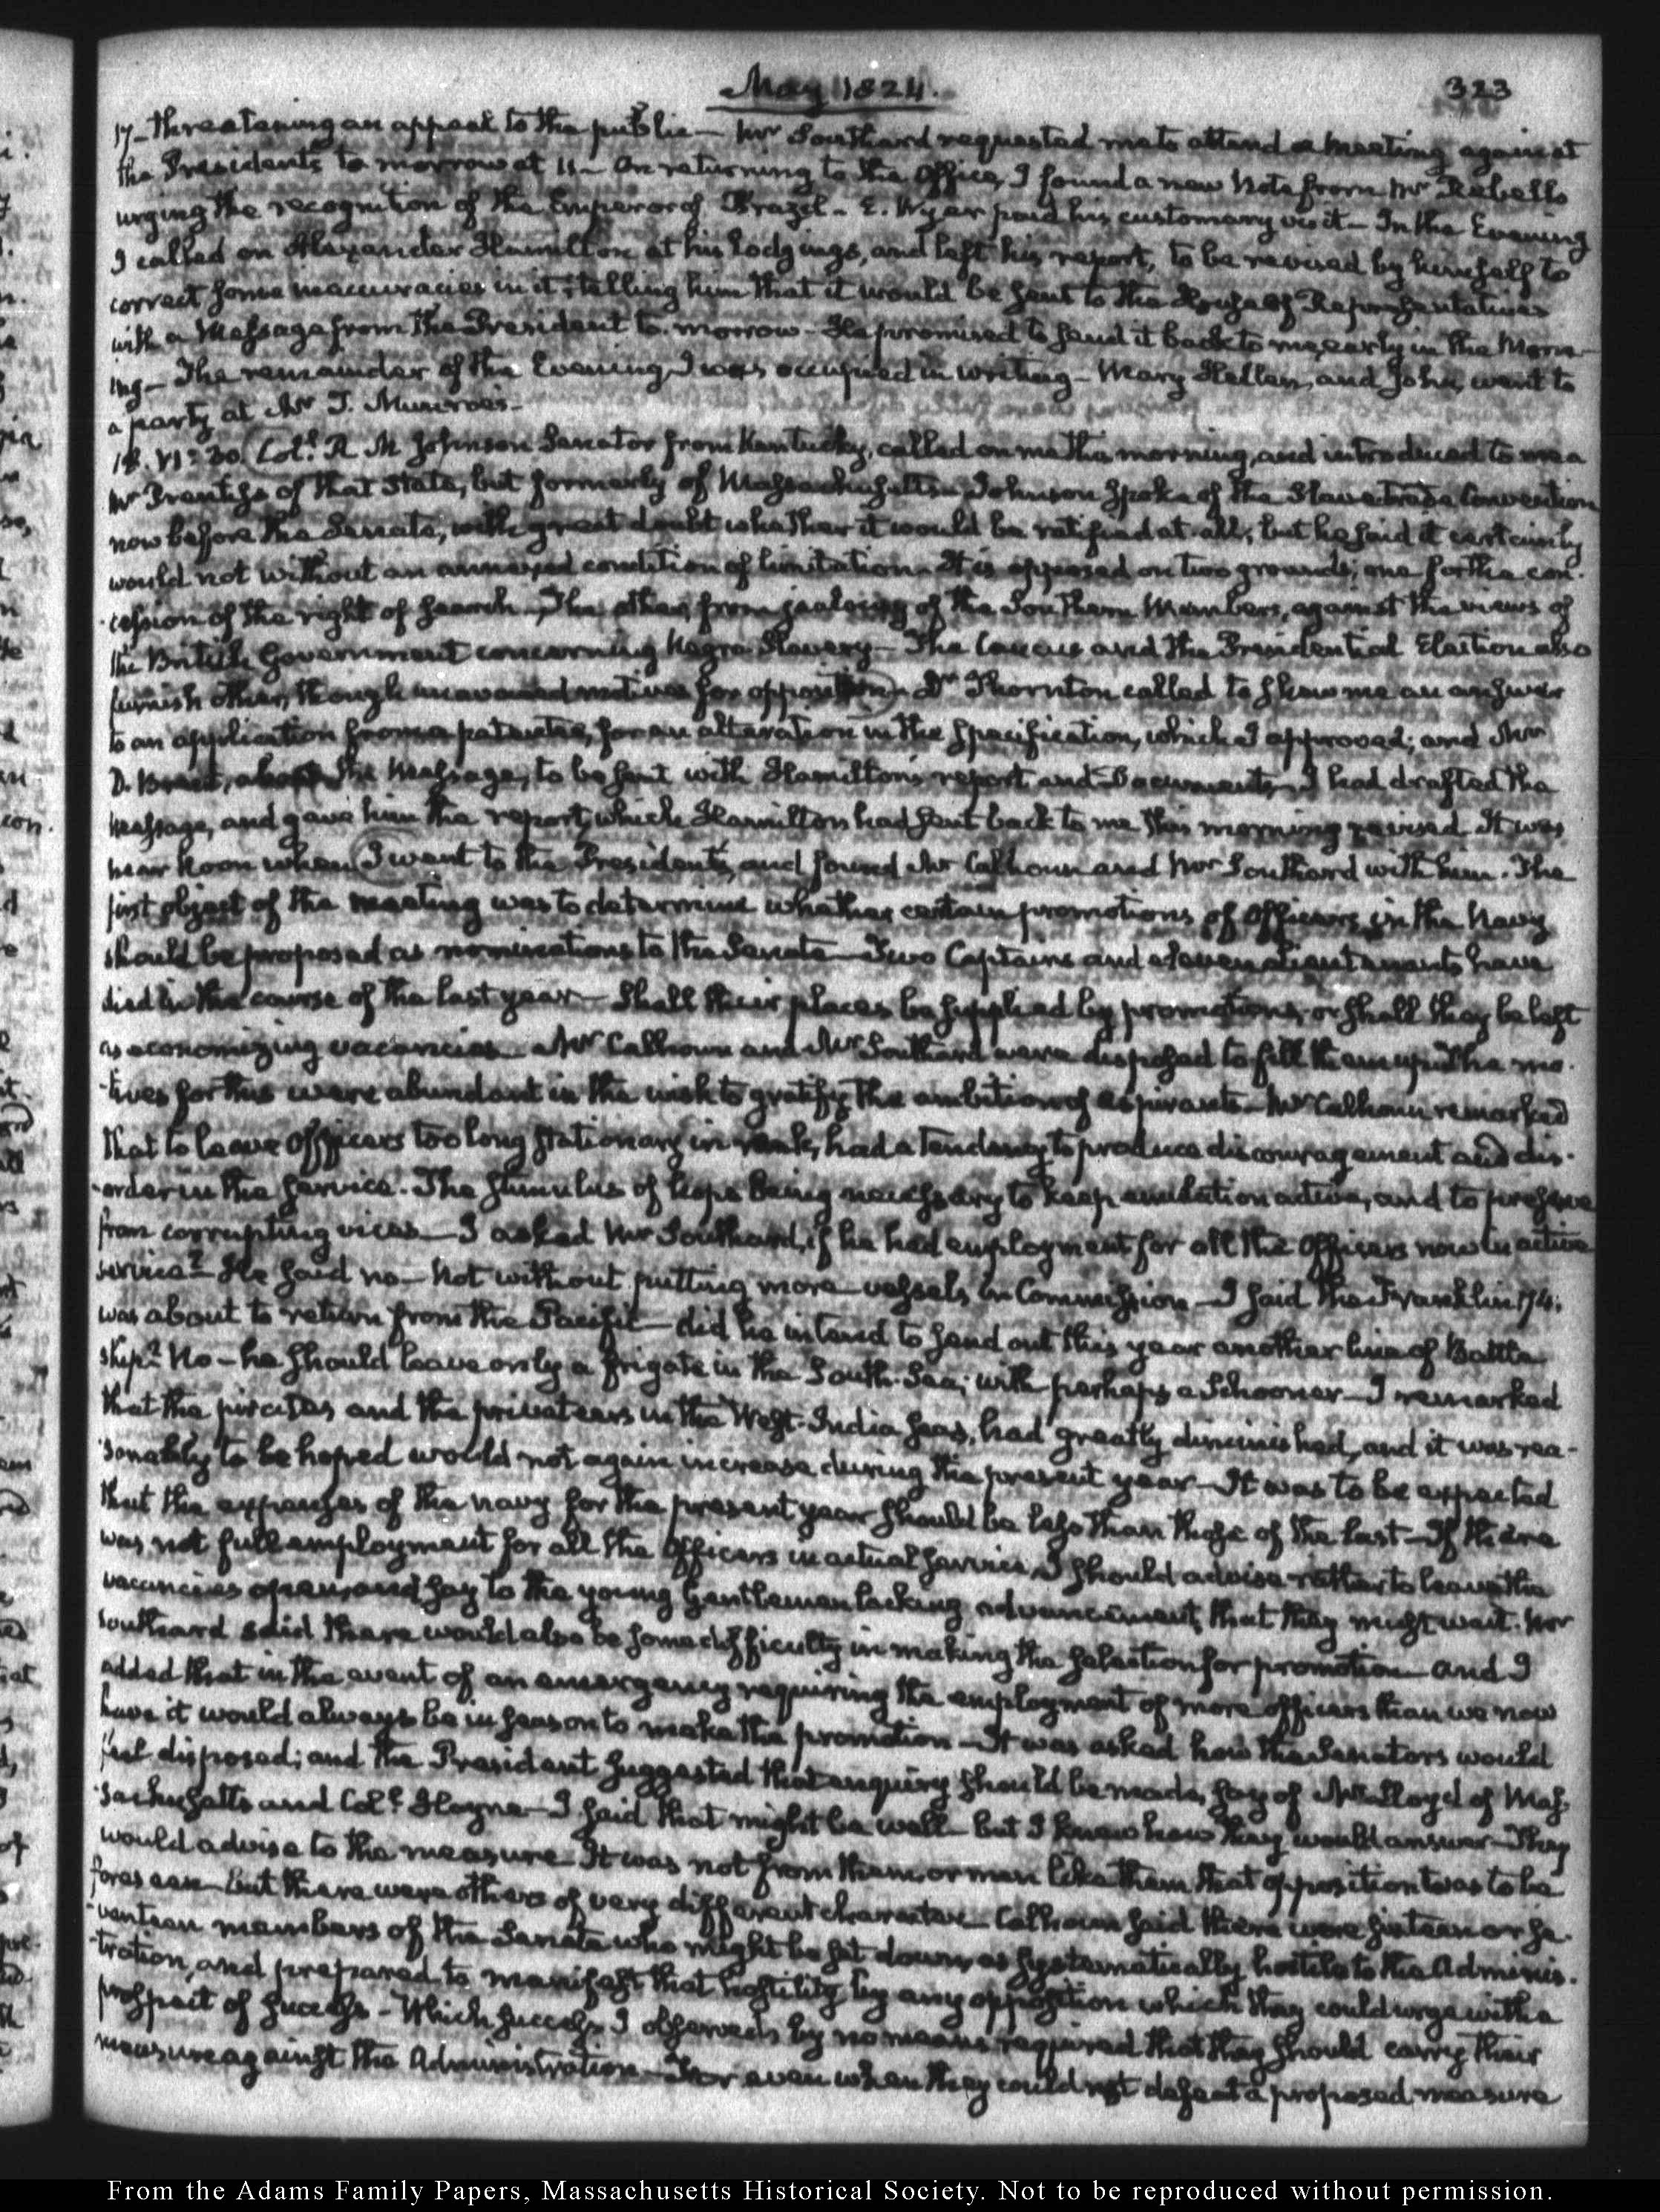 May 1824.
323
17— threatening an appeal to the public— Mr Southard requested me to attend a meeting again at
the Presidents to morrow at 11— On returning to the Office, I found a new Note from Mr Rebello
urging the recognition of the Emperor of Brazil— E. Wyer paid his customary visit— In the Evening
I called on Alexander Hamilton at his lodgings, and left his report, to be revised by himself to
correct some inaccuracies in it; telling him that it would be sent to the House of Representatives
with a Message from the President to-morrow— He promised to send it back to me, early in the Morn-
ing— The remainder of the Evening I was occupied in writing— Mary Hellen, and John, went to
a party at Mr J. Munroe's—
18. VI:30. Coll. R. M Johnson Senator from Kentucky, called on me this morning, and introduced to me a
Mr Prentiss of that State, but formerly of Massachusetts— Johnson spoke of the Slave trade Convention
now before the Senate, with great doubt whether it would be ratified at all; but he said it certainly
would not without an annexed condition of limitation— It is opposed on two grounds; one for the con-
-cession of the right of search— The other, from jealousy of the Southern Members, against the views of
the British Government concerning Negro Slavery— The Caucus and the Presidential Election also
furnish other, though unavowed motives for opposition— Dr Thornton called to shew me an answer
to an application from a patentee, for an alteration in the specification, which I approved; and Mr
D. Brent, about the Message, to be sent with Hamilton's report and Documents— I had drafted the
Message, and gave him the report, which Hamilton had sent back to me this morning revised. It was
near Noon when I went to the President's, and found Mr Calhoun and Mr Southard with him. The
first object of the meeting was to determine whether certain promotions of Officers in the Navy
should be proposed as nominations to the Senate— Two Captains and eleven Lieutenants have
died in the course of the last year— Shall their places be supplied by promotions, or shall they be left
as economizing vacancies— Mr Calhoun and Mr Southard were disposed to fill them up. The mo-
-tives for this were abundant in the wish to gratify the ambition of aspirants— Mr Calhoun remarked
that to leave Officers too long stationary in rank, had a tendency to produce discouragement and dis-
-order in the service. The stimulus of hope being necessary to keep emulation active, and to preserve
from corrupting vices— I asked Mr Southard, if he had employment for all the Officers now in active
service? He said no— Not without putting more vessels in Commission— I said the Franklin 74.
was about to return from the Pacific— did he intend to send out this year another line of Battle
ship? No— he should leave only a frigate in the South-Sea; with perhaps a Schooner— I remarked
that the pirates and the privateers in the West-India seas, had greatly diminished, and it was rea-
-sonably to be hoped would not again increase during the present year— It was to be expected
that the expenses of the navy for the present year should be less than those of the last— If there
was not full employment for all the Officers in actual service, I should advise rather to leave the
vacancies open, and say to the young Gentlemen lacking advancement, that they must wait. Mr
Southard said there would also be some difficulty in making the selection for promotion— and I
added that in the event of an emergency requiring the employment of more officers than we now
have it would always be in season to make the promotion— It was asked how the Senators would
feel disposed; and the President suggested that enquiry should be made, say of Mr Lloyd of Mas-
-sachusetts and Coll. Hayne— I said that might be well— but I knew how they would answer— They
would advise to the measure— It was not from them, or men like them that opposition was to be
foreseen— but there were others of very different character— Calhoun said there were sixteen or se-
-venteen members of the Senate who might be set down as systematically hostile to the Adminis-
-tration, and prepared to manifest that hostility by any opposition which they could urge with a
prospect of success— Which success I observed, by no means required that they should carry their
measure against the Administration— For even when they could not defeat a proposed measure
From the Adams Family Papers, Massachusetts Historical Society. Not to be reproduced without permission.